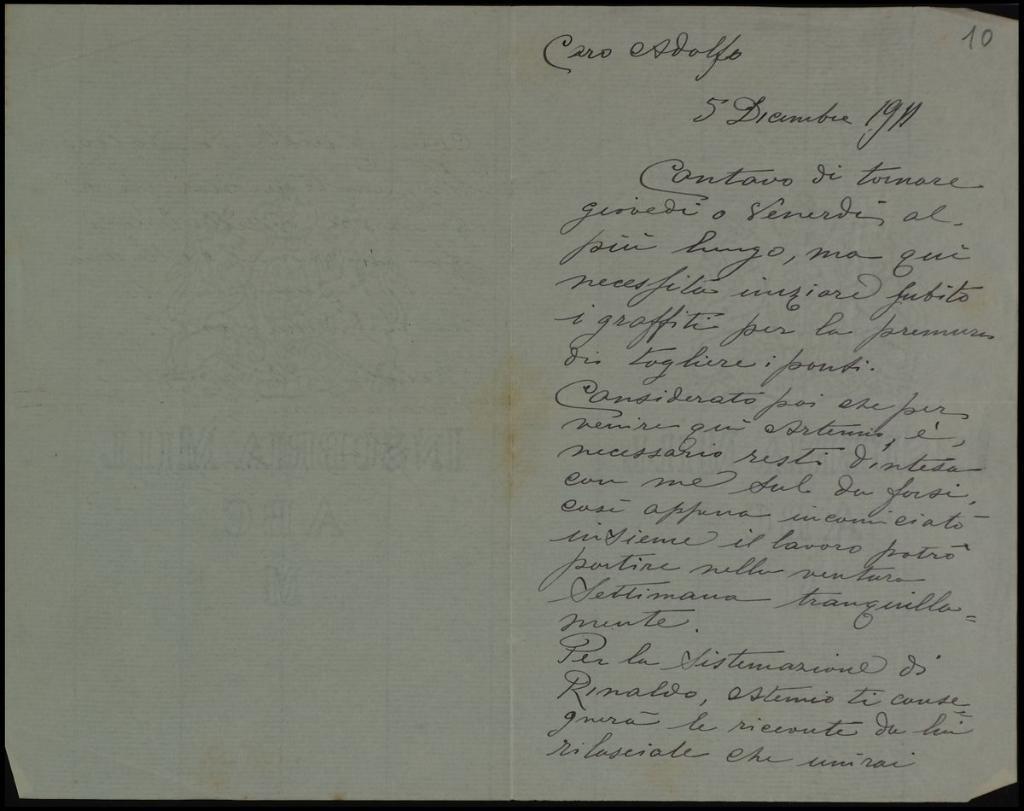 10
Caro Adolfo
5 Dicembre 1911
Contavo di tornare
giovedì o Venerdì, al
più lungo, ma qui
necessita iniziare subito
i graffiti per la premura
di togliere i ponti.
Considerato poi che per
venire qui Artemio, è
necessario resti d'intesa
con me sul da farsi,
così appena incominciato
insieme il lavoro potrò
partire nella ventura
Settimana tranquilla=
mente.
Per la Sistemazione di
Rinaldo, Artemio ti conse=
gnerà le ricevute da lui
rilasciate che unirai
INSUBRIA MIL
A E C
M